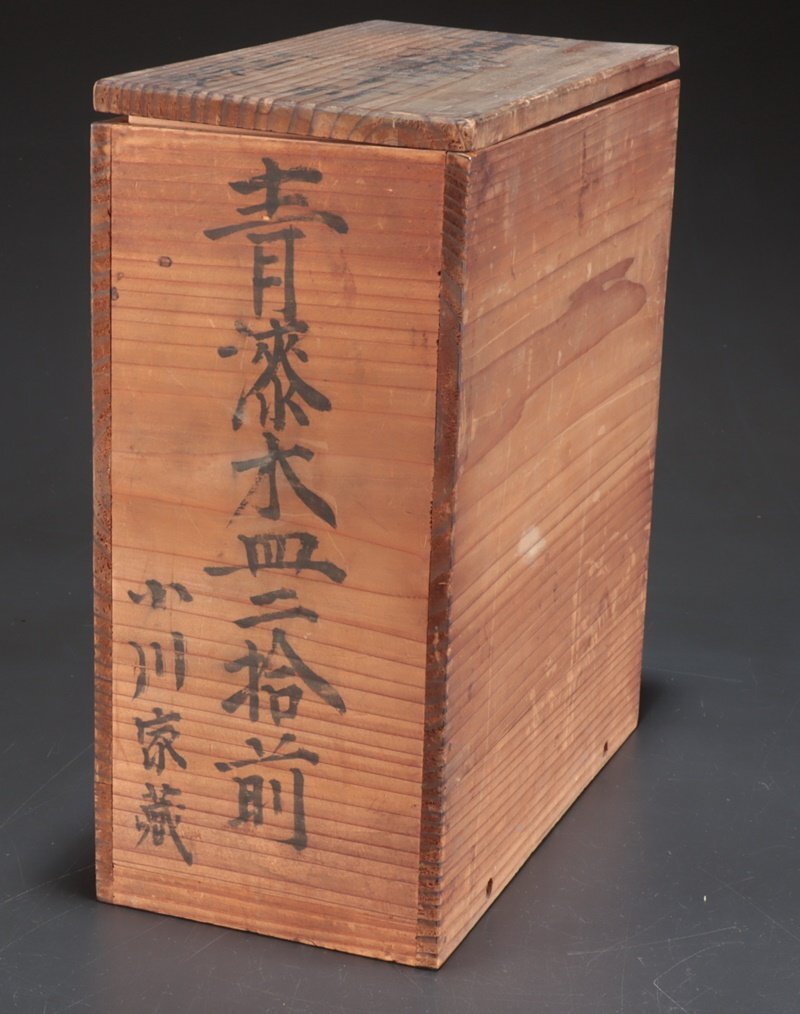 青漆木皿二拾前
小川家蔵